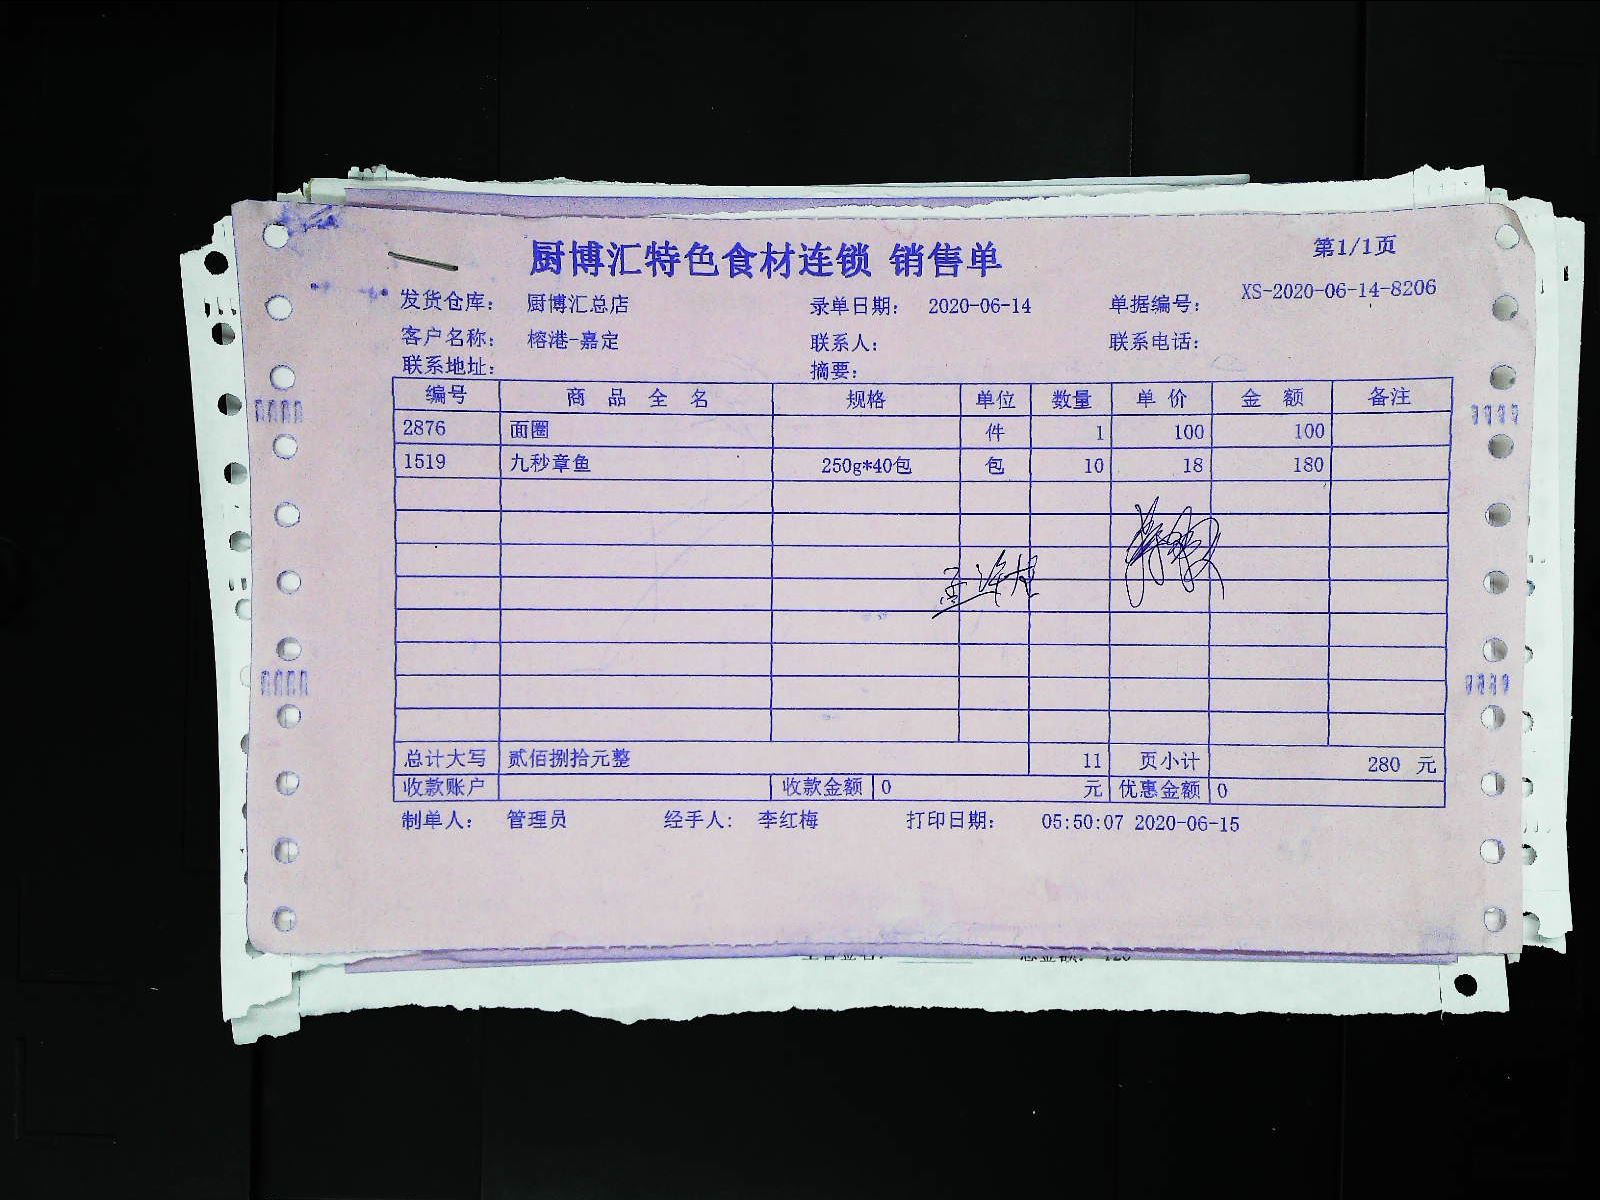 厨博汇特色食材连锁 销售单
第1/1页
发货仓库： 厨博汇总店 录单日期： 2020-06-14 单据编号： XS-2020-06-14-8206
客户名称： 榕港-嘉定 联系人： 联系电话：
联系地址： 摘要：
编号 商 品 全 名 规格 单位 数量 单 价 金 额 备注
2876 面圈 件 1 100 100
1519 九秒章鱼 250g*40包 包 10 18 180
总计大写 贰佰捌拾元整 11 页小计 280 元
收款账户 收款金额 0 元 优惠金额 0
制单人： 管理员 经手人： 李红梅 打印日期： 05:50:07 2020-06-15